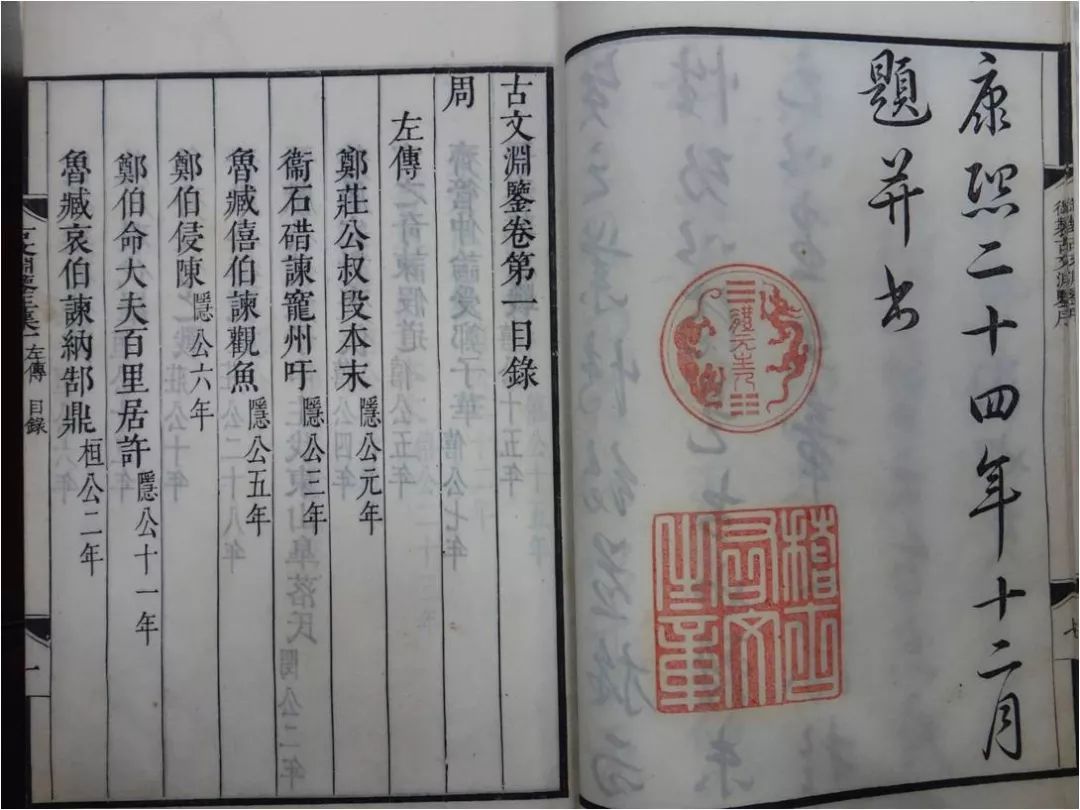 康熙二十四年十二月
題并书
體元主人
稽古
右文
之章
古文淵鑒卷第一目錄
周
左傳
鄭莊公叔段本末 隱公元年
衞石碏諫寵州吁 隱公三年
魯臧僖伯諫觀魚 隱公五年
鄭伯侵陳 隱公六年
鄭伯命大夫百里居許 隱公十一年
魯臧哀伯諫納郜鼎 桓公二年
左傳 目錄
一